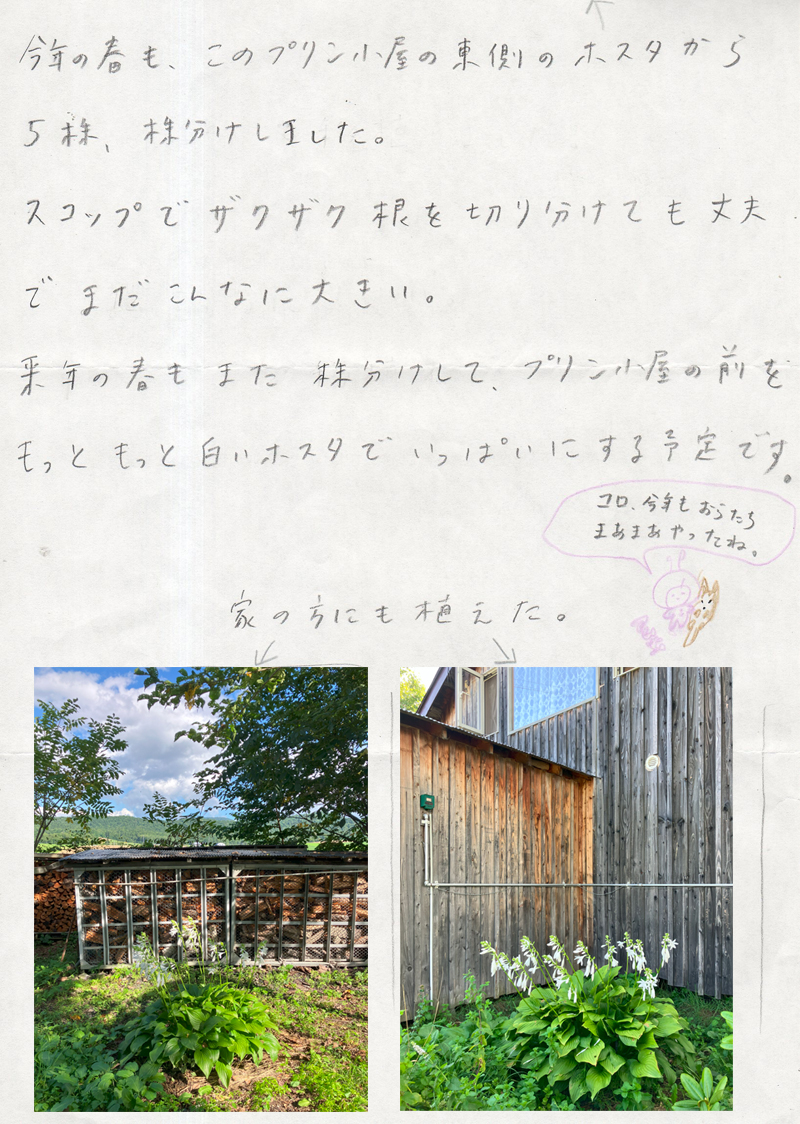 今年の春も、このプリン小屋の東側のホスタから
5株、株分けしました。
スコップでザクザク根を切り分けても丈夫
でまだこんなに大きい。
来年の春もまた株分けして、プリン小屋の前を
もっともっと白いホスタでいっぱいにする予定です。
コロ、今年もおらたち
まあまあやったね。
家の方にも植えた。